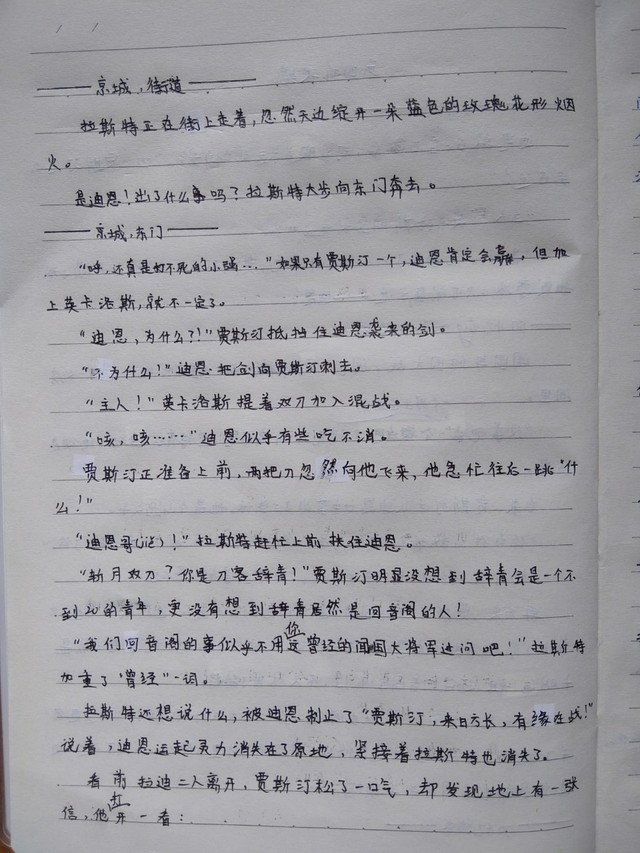 —— 京城,街道 ——
拉斯特正在街上走着,忽然天边绽开一朵蓝色的玫瑰花形烟
火。
是迪恩!出了什么事吗?拉斯特大步向东门奔去。
—— 京城,东门 ——
“呼,还真是打不死的小强…”如果只有贾斯汀一个,迪恩肯定会赢,但加
上英卡洛斯,就不一定了。
“迪恩,为什么?!”贾斯汀抵挡住迪恩袭来的剑。
“不为什么!”迪恩把剑向贾斯汀刺去。
“主人!”英卡洛斯提着双刀加入混战。
“咳,咳……”迪恩似乎有些吃不消。
贾斯汀正准备上前,两把刀忽然向他飞来,他急忙往后一跳“什
么!”
“迪恩哥(jiě)!”拉斯特赶忙上前扶住迪恩。
“斩月双刀?你是刀客辞青!”贾斯汀明显没想到辞青会是一个不
到20的青年,更没有想到辞青居然是回音阁的人!
“我们回音阁的事似乎不用你这曾经的闻国大将军过问吧!”拉斯特
加重了“曾经”一词。
拉斯特还想说什么,被迪恩制止了“贾斯汀,来日方长,有缘在战!”
说着,迪恩运起灵力消失在了原地,紧接着拉斯特也消失了。
看前拉迪二人离开,贾斯汀松了一口气,却发现地上有一张
信,他打开一看: